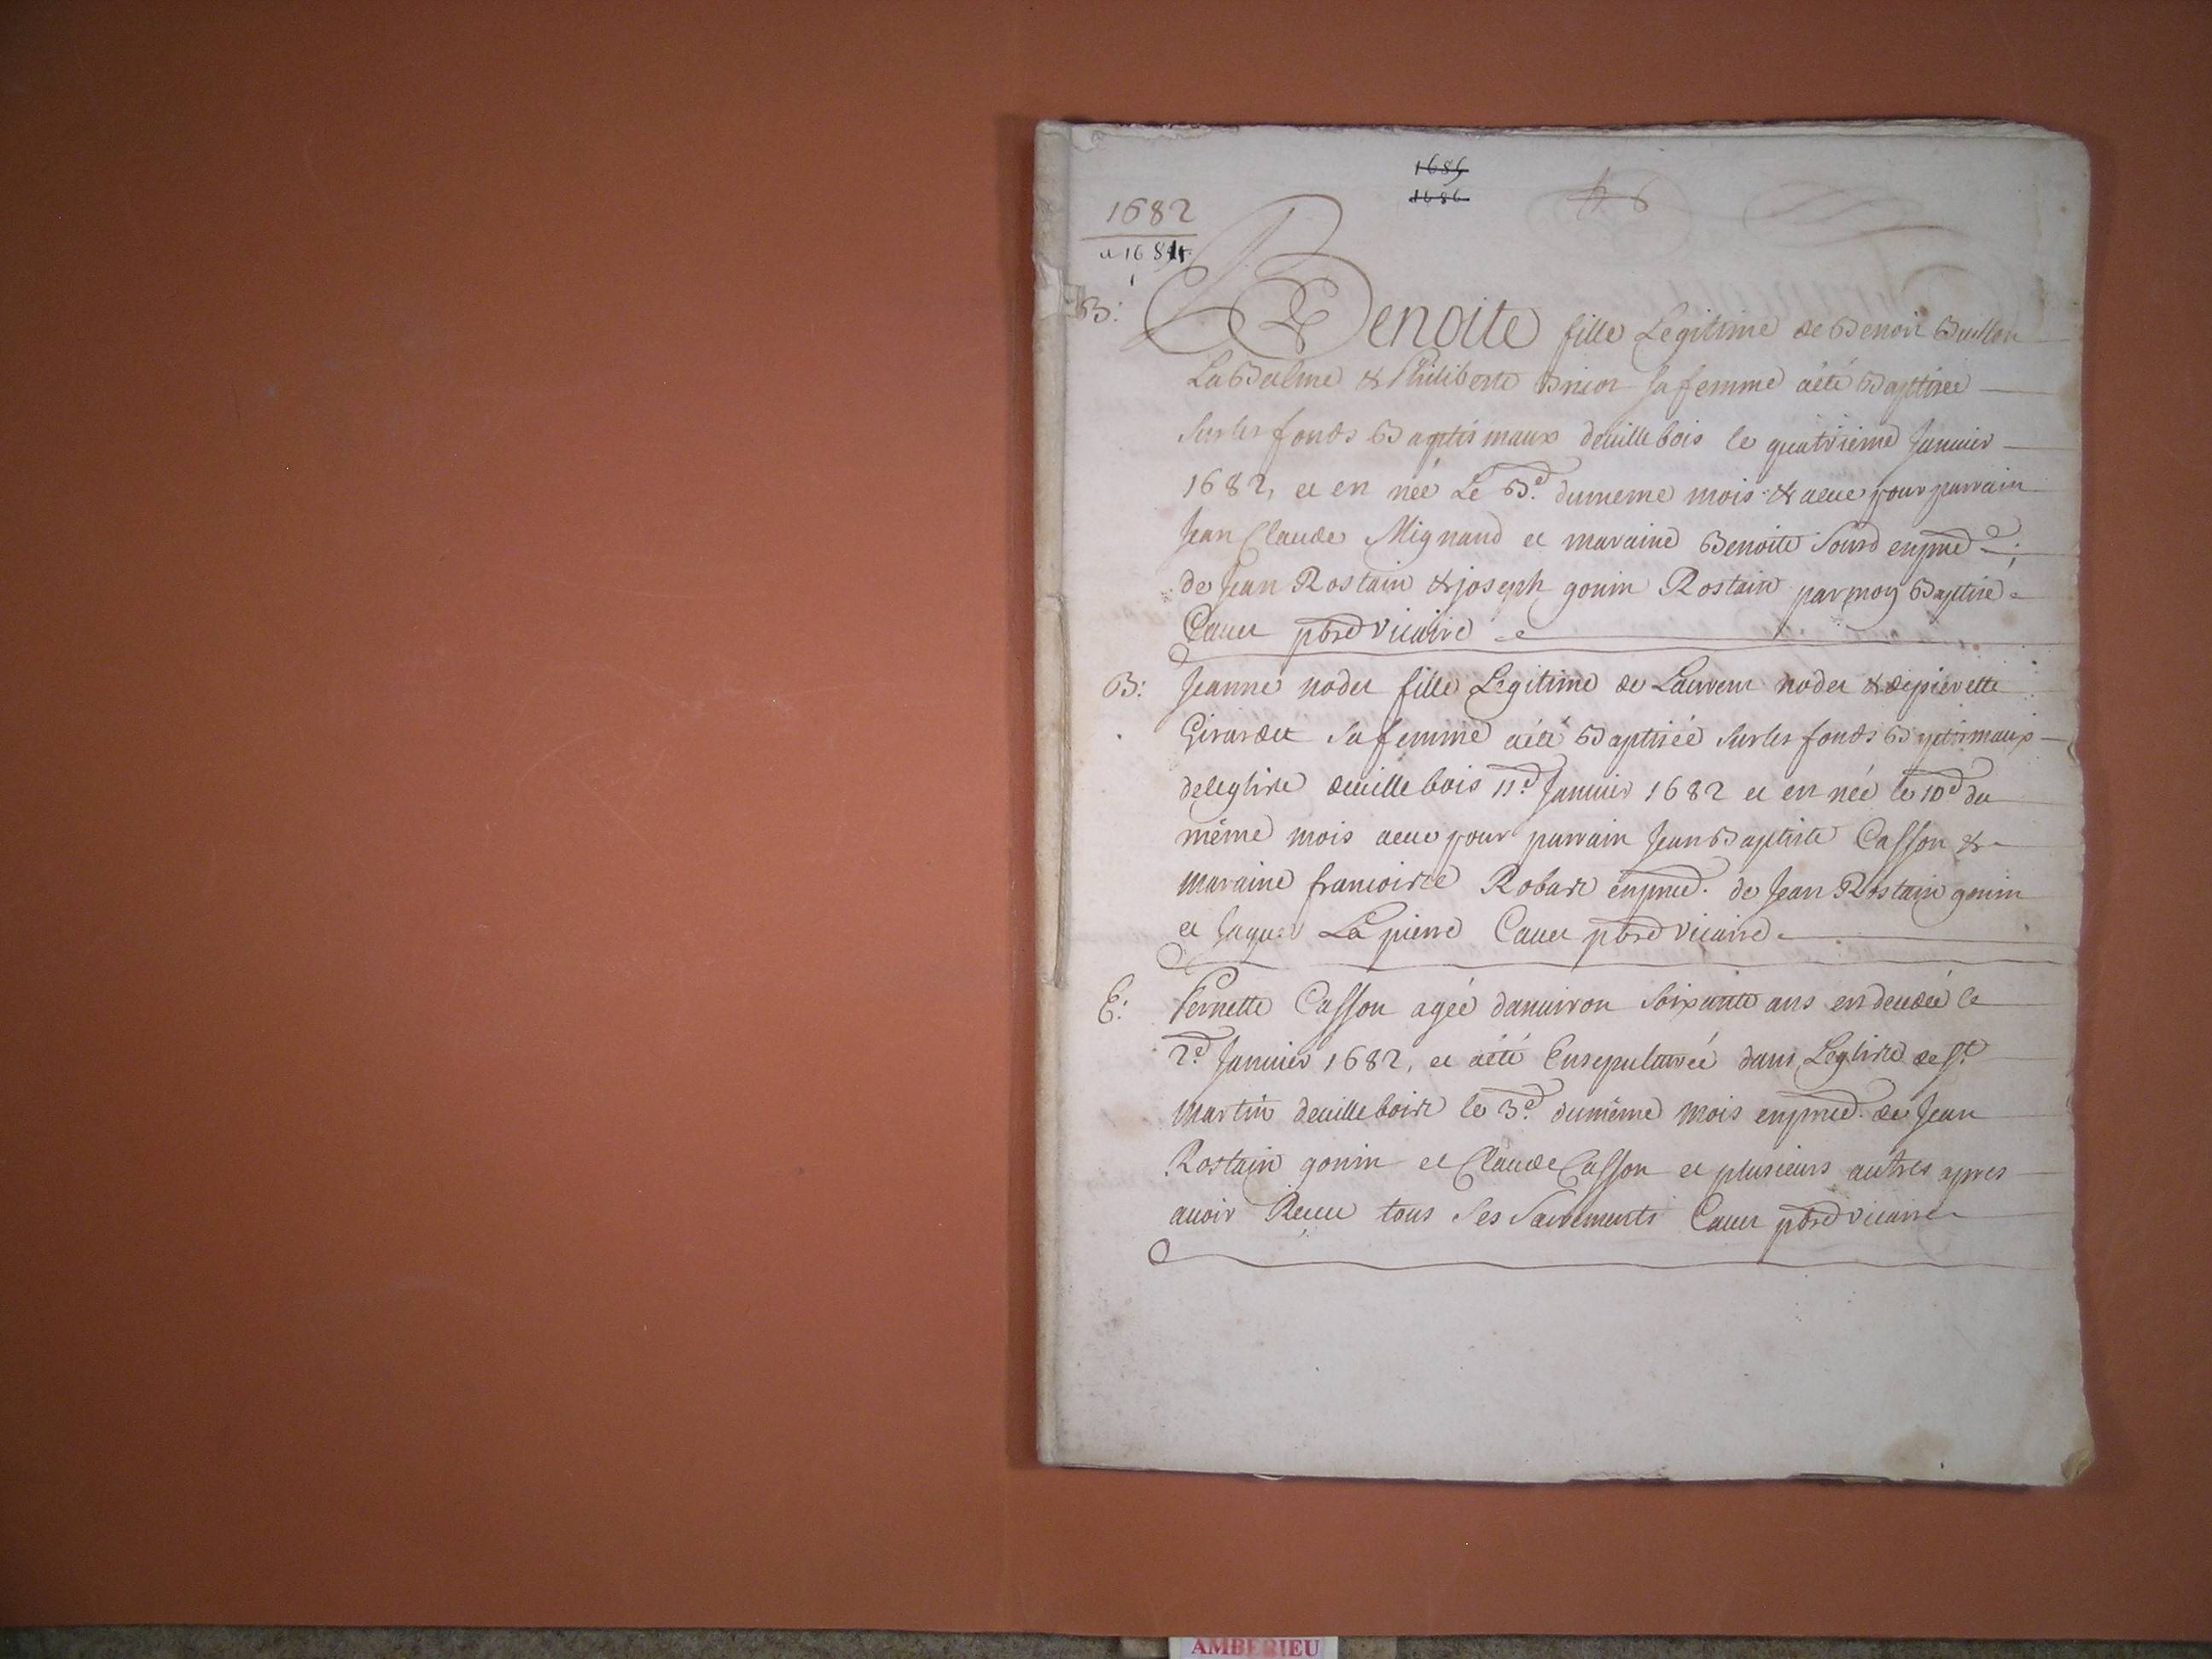 1685
1686
1682
a 1684
B: Benoite fille Legitime de Benoit Buillon
La Balme & Philiberte sa femme aété Baptisée
sur les fonds Baptismaux deuillebois le quatrieme Januier
1682, et en née Le 3.e dumeme mois & aeue pour parrain
Jean Claude Mignand et maraine Benoite Sourd enpnce
de Jean Rostain & joseph gonin Rostain par moy Baptisé
Cauet pbre vicaire
B: Jeanne nodet fille Legitime de Laurent nodet & de pierette
Girardet sa femme aété Baptisée sur les fonds Baptismaux
deleglise deuillebois 11.e Januier 1682 et en née le 10.e du
même mois aeue pour parrain Jean Baptiste Casson &
maraine francoise Robart enpnce. de Jean Rostain gonin
et Jaque La pierre Cauet pbre vicaire
E: Pernette Casson agée danuiron Soixante ans en deudeé le
2.e Januier 1682, et aété Ensepulturée dans Leglise de St.
Martin deuilleboise le 3.e dumême mois enpnce. de Jean
Rostain gonin et Claude Casson et plusieurs autres apres
auoir Reçue tous ses Sacrements Cauet pbre vicaire
AMBERIEU